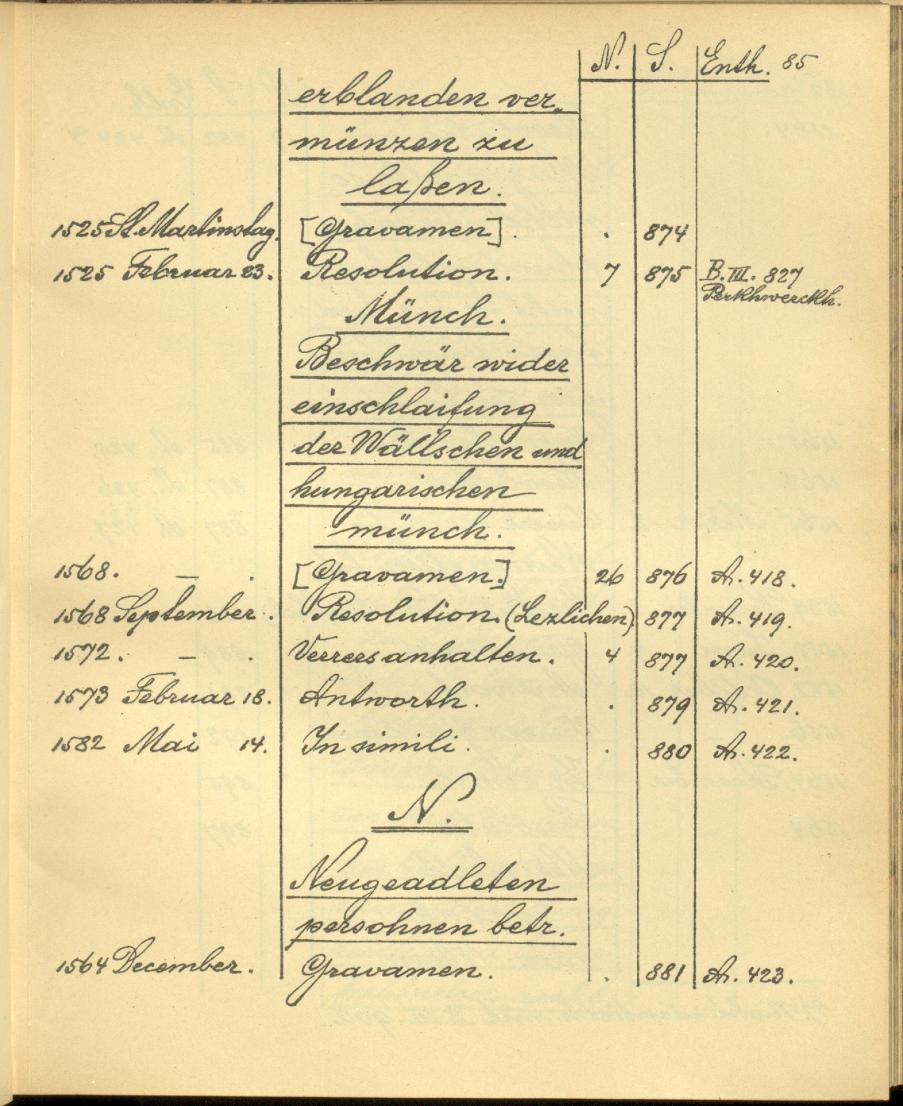 N. S. Enth. 85
erblanden ver„
münzen zu
laßen.
1525 St. Martinstag. [Gravamen]. . 874
1525 Februar 23. Resolution. 7 875 B. III. 827
Perkhwerckh.
Münch.
Beschwär wider
einschlaifung
der Wällschen und
hungarischen
münch.
1568. — . [Gravamen.] 26 876 A. 418.
1568 September. Resolution. (Lezlichen) 877 A. 419.
1572. — . Verrers anhalten. 4 877 A. 420.
1573 Februar 18. Antworth. . 879 A. 421.
1582 Mai 14. In simili. . 880 A. 422.
N.
Neugeadleten
persohnen betr.
1564 December. Gravamen. . 881 A. 423.